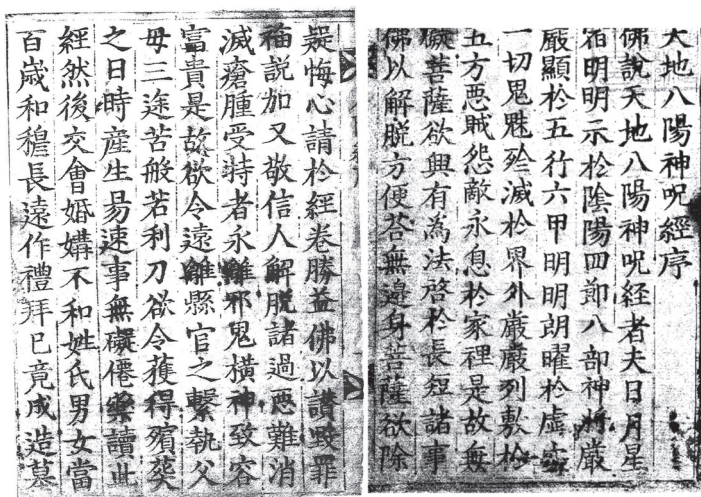 天地八陽神呪經序
佛說天地八陽神呪経者夫日月星
宿明明示於陰陽四節八部神將嚴
嚴顯於五行六甲明明朗曜於虛空
一切鬼魅殄滅於界外嚴嚴列敷於
五方惡賊怨敵永息於家裡是故無
礙菩薩欲興有為法啓於長短諸事
佛以解脫方便荅無邊身菩薩欲除
疑悔心請於經卷勝益佛以讚毀罪
福説加又敬信人解脫諸過惡難消
滅瘡腫受持者永離邪鬼橫神致容
富貴是故欲令遠離縣官之繫執父
母三途苦般若利刀欲令獲得殯葬
之日時産生易速事無礙僊樂讀此
經然後交會婚媾不和姓氏男女當
百歲和穆長遠作禮拜已竟成造墓